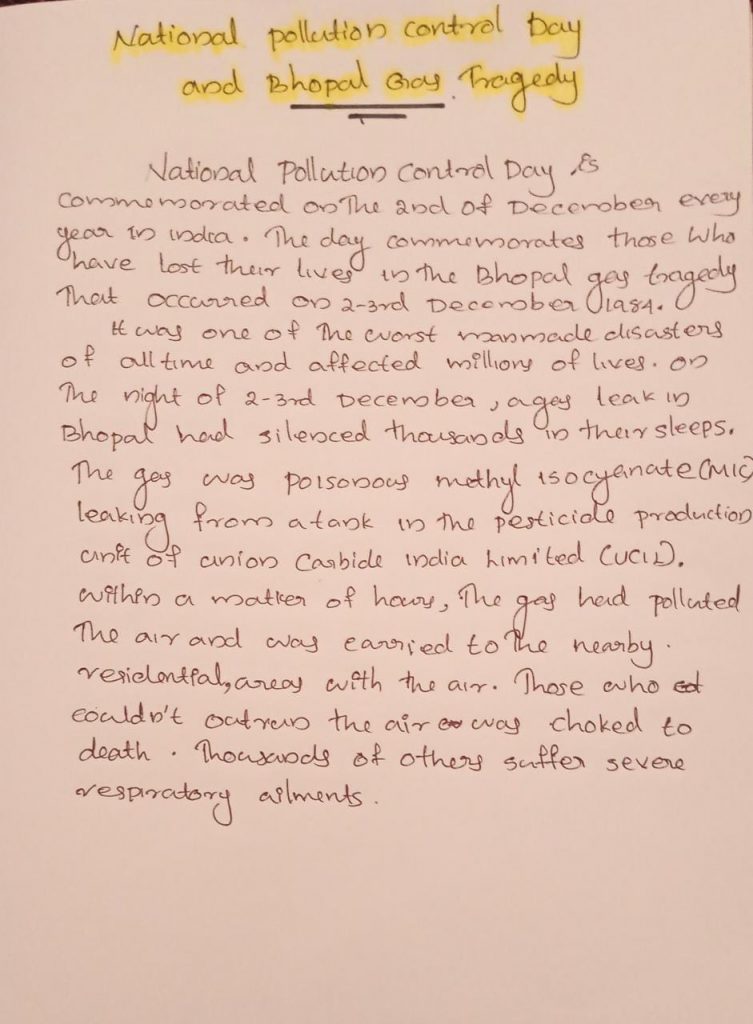 National pollution control Day
and Bhopal Gas Tragedy
National Pollution Control Day is
commemorated on The 2nd of December every
year in india. The day commemorates those who
have lost their lives in the Bhopal gas tragedy
That occurred on 2-3rd December 1984.
It was one of The worst manmade disasters
of all time and affected millions of lives. on
The night of 2-3rd December, a gas leak in
Bhopal had silenced thousands in their sleeps.
The gas was poisonous methyl isocyanate (MIC)
leaking from a tank in the pesticide production
unit of union Carbide india limited (UCIL).
within a matter of hours, The gas had polluted
The air and was carried to the nearby.
residential, areas with the air. Those who
couldn't outrun the air was choked to
death. Thousands of others suffer severe
respiratory ailments.